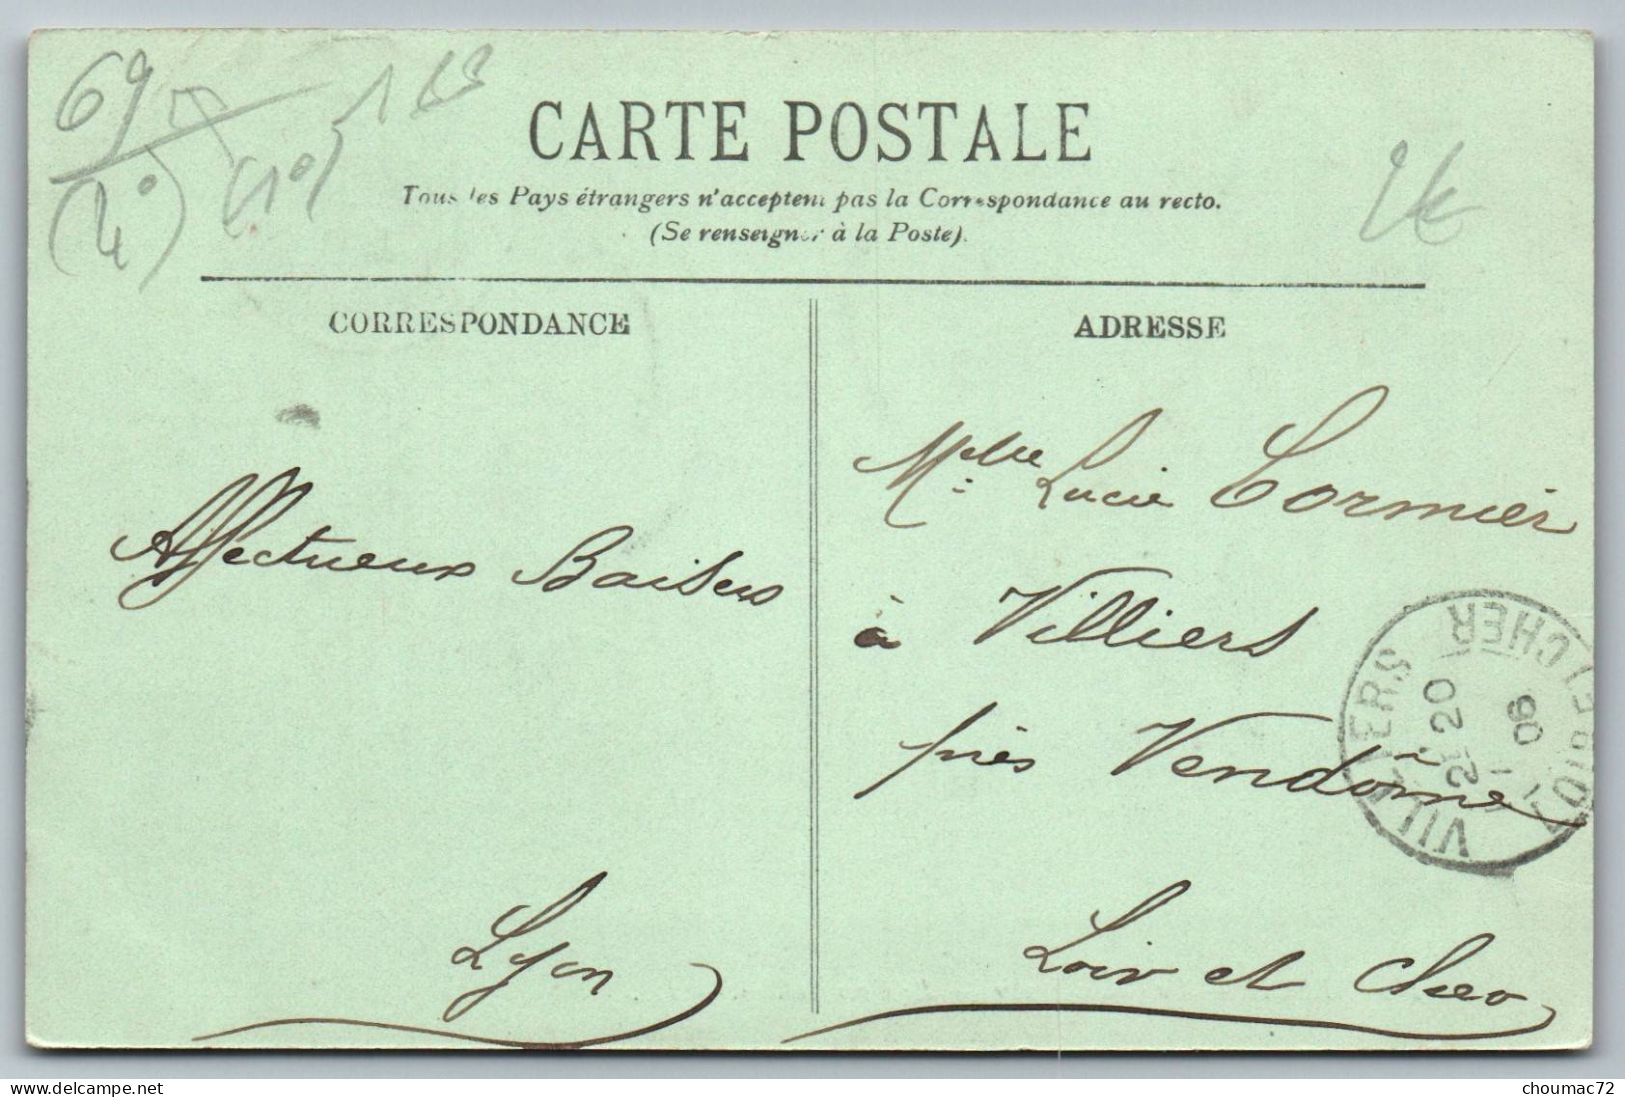 69
(4°)
(10)
1 69
2€
CARTE POSTALE
Tous les Pays étrangers n'acceptent pas la Correspondance au recto.
(Se renseigner à la Poste)
CORRESPONDANCE
ADRESSE
Affectueux Baisers
Lyon
Melle Lucie Cormier
à Villiers
près Vendôme
Loir et Cher
VILLIERS
LOIR-ET-CHER
21 20
06
delcampe.net
choumac72